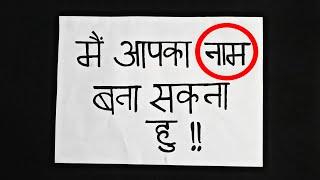 मैं आपका नाम
बना सकना
हु !!